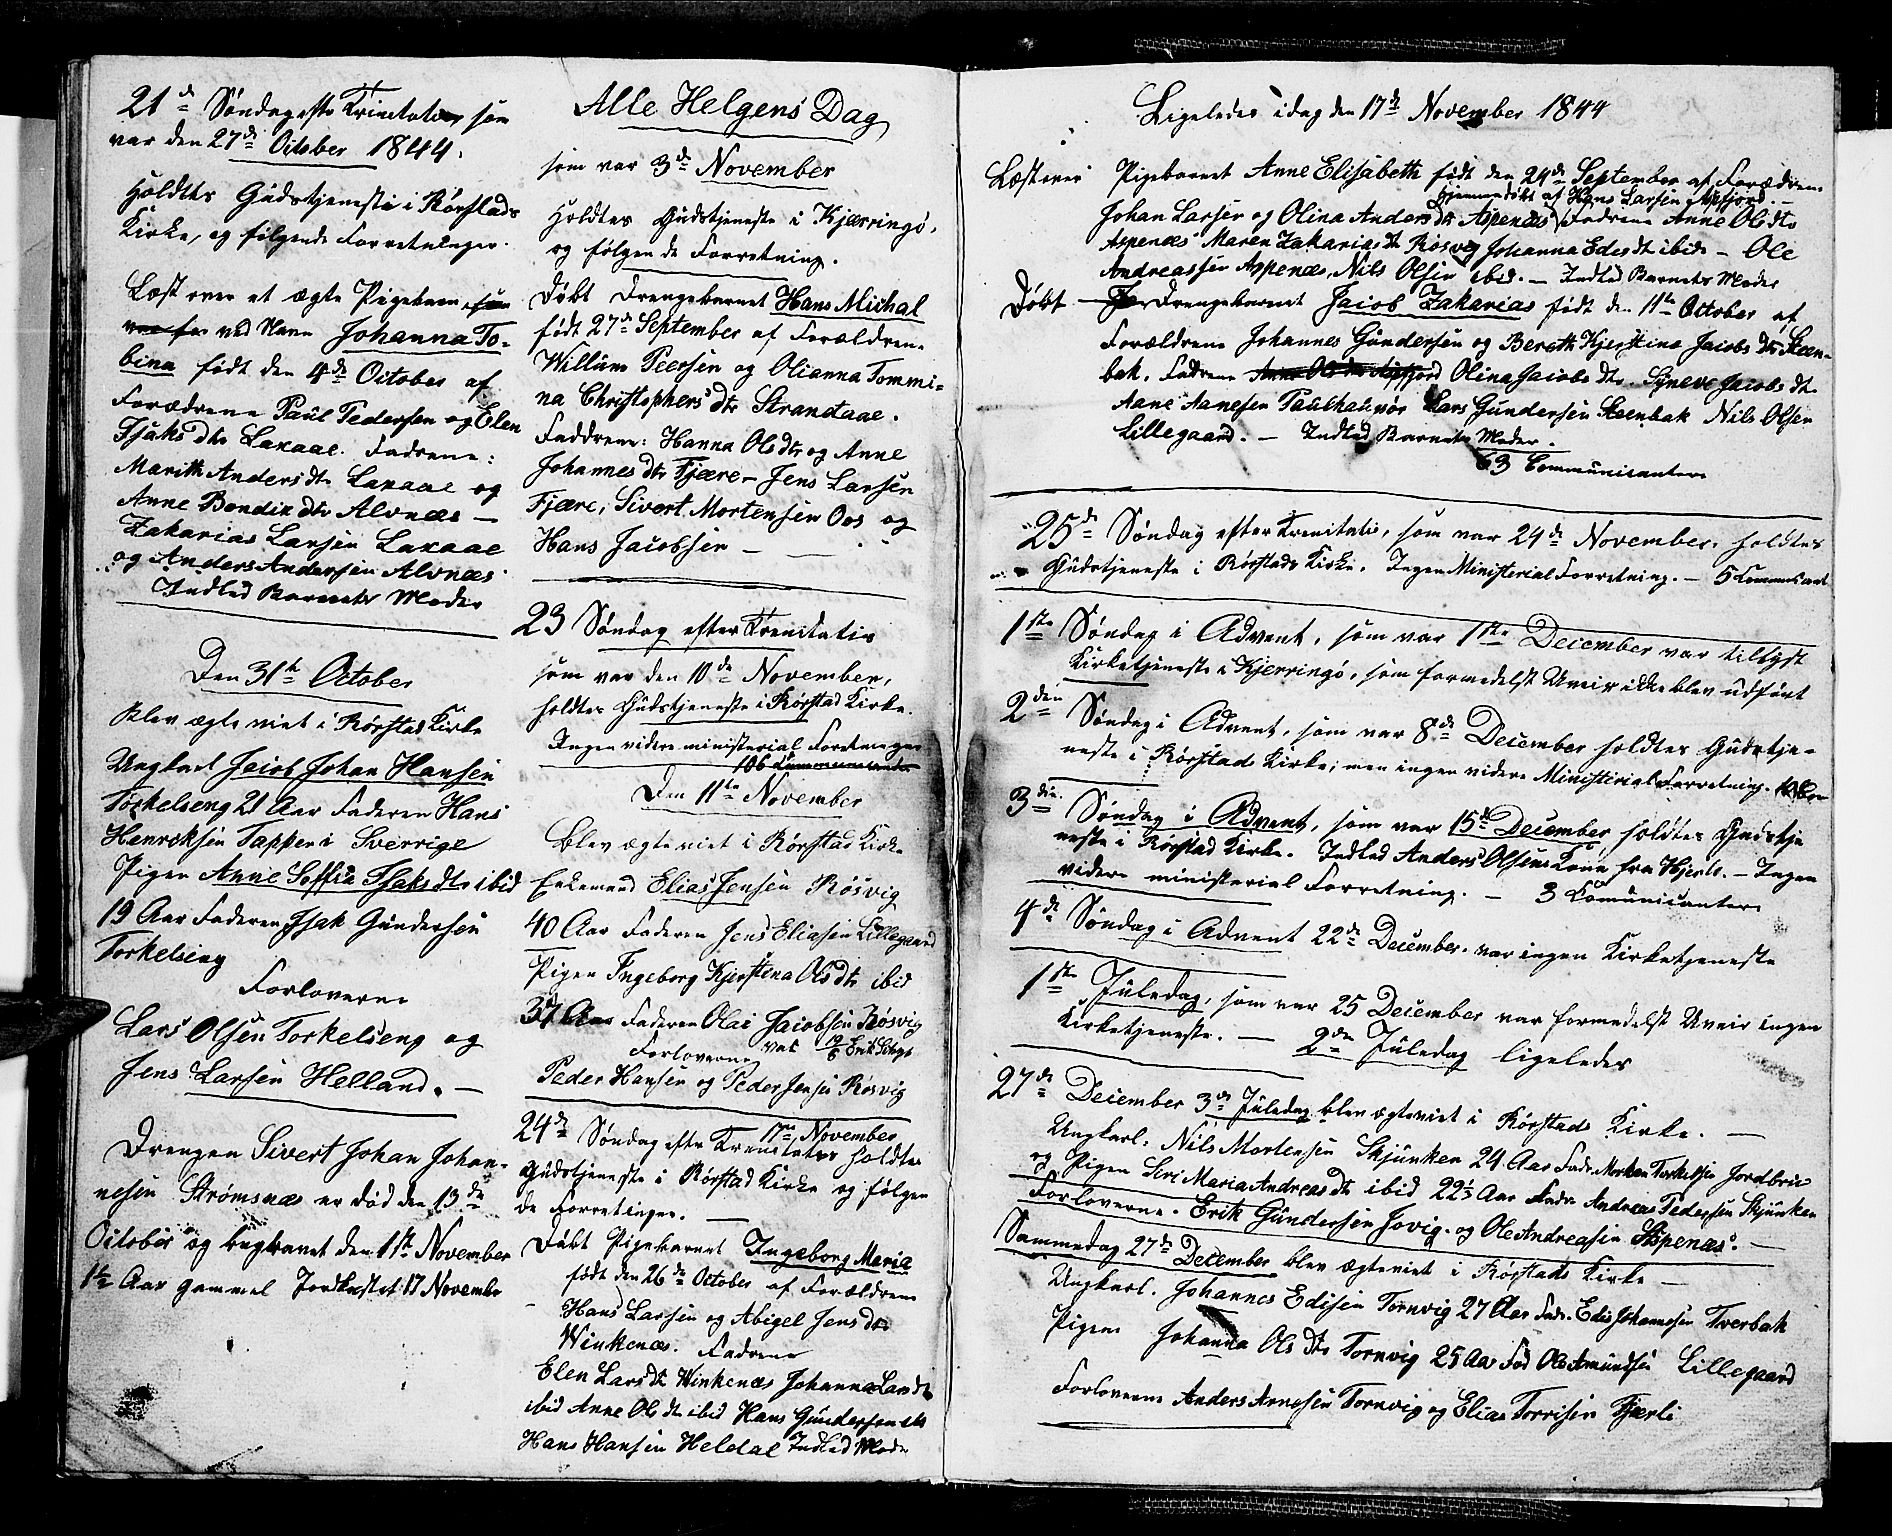 21de Søndag efter Trinitatis som
var den 27de October 1844.
Holdtes Gudstjeneste i Rørstads
Kirke, og følgende Forretninger.
Læst over et ægte Pigebarn, som
var fø ved Navn Johanna To-
bina født den 4de October af
Forældrene Paul Pedersen og Elen
Isaks dtr Laxaae. Fadrene:
Marith Anders dtr Laxaae og
Anne Bendix dtr Alvnæs —
Zakarias Larsen Laxaae
og Anders Andersen Alvnæs
Indled Barnets Moder
Den 31te October
Blev ægteviet i Rørstad Kirke
Ungkarl Jacob Johan Hansen
Torkelseng 21 Aar Faderen Hans
Henriksen Tapper i Sverrige
Pigen Anne Soffia Isaks dtr ibid
19 Aar Faderen Isak Gundersen
Torkelseng
Forloverne
Lars Olsen Torkelseng og
Jens Larsen Helland. —
Drengen Sivert Johan Johan-
nesen Strømsnæs er død den 13de
October og begravet den 1ste November
1½ Aar gammel Jordkastet 17 Novembr
Alle Helgens Dag
som var 3de November
Holdtes Gudstjeneste i Kjærringø,
og følgende Forretning.
Døbt Drengebarnet Hans Michal
født 27de September af Forældrene
Willum Peersen og Olianna Tommi-
na Christophers dtr Strandaae.
Faddrene: Hanna Ols dtr og Anne
Johannes dtr Fjære — Jens Larsen
Fjære, Sivert Mortensen Oos og
Hans Jacobsen —
23 Søndag efter Trenitatis
som var den 10de November,
holdtes Gudstjeneste i Rørstad Kirke.
Ingen videre ministerial Forretninger
106 Communicanter
Den 11te November
Blev ægteviet i Rørstad Kirke
Enkemand Elias Jensen Røsvig
40 Aar Faderen Jens Eliasen Lillegaard
Pigen Ingeborg Kjerstena Ols dtr ibid
37 Aar Faderen Olai Jacobsen Røsvig
Forloverne
Peder Hansen og Peder Jensen Røsvig
24de Søndag efter Trenitatis 17de November holdtes
Gudstjeneste i Rørstad Kirke og følgen
de Forretinger. —
Døbt Pigebarnet Ingeborg Maria
født den 26de October af Forældrene
Hans Larsen og Abigel Jens dtr
Winkenæs. Fadrene
Elen Lars dtr Winkenæs Johanna Lars dtr
ibid Anne Ols dtr ibid Hans Gundersen
Hans Hansen Heldal Indled Moder
Ligeledes idag den 17de November 1844
Læst over Pigebarnet Anne Elisabeth født den 24de September af Forældrene
hjemmedøbt af Hans Larsen
Johan Larsen og Olina Anders dtr Aspenæs Fadrene Anne Ols dtr
Aspenæs Maren Zakarias dtr Røsvig Johanna Edis dtr ibid — Ole
Andreassen Aspenæs, Nils Olsen ibid. — Indled Barnets Moder
Døbt Fø Drengebarnet Jacob Zakarias født den 11te October af
Forældrene Johannes Gundersen og Bereth Kjerstina Jacobs dtr Steen-
bak. Fadrene Anne Ols dtr Olina Jacobs dtr. Synev Jacobs dtr
Aane Aanesen Lars Gundersen Steenbak Nils Olsen
Lillegaard. — Indled Barnets Moder.
63 Communicanter
25de Søndag efter Trenitatis, som var 24de November. holdtes
Gudstjeneste i Rørstads Kirke. Ingen Ministerial Forretning. — 5 Communicant
1ste Søndag i Advent, som var 1ste December var tillyst
Kirketjeneste i Kjerringø, som formedelst Uveir ikke blev udført
2den Søndag i Advent, som var 8de December holdtes Gudstje-
neste i Rørstads Kirke, men ingen videre Ministerial Forretning.
3die Søndag i Advent, som var 15de December, holdtes Gudstje
neste i Rørstad Kirke. Indled Anders Olsens Kone fra Hjerli. — Ingen
videre ministerial Forretning. — 3 Comunicanter
4de Søndag i Advent 22de December. var ingen Kirketjeneste
1ste Juledag, som var 25 December var formedelst Uveir ingen
Kirketjeneste. — 2den Juledag ligeledes
27de December 3de Juledag blev ægteviet i Rørstads Kirke. —
Ungkarl. Nils Mortensen Skjunken 24 Aar Fadr Morten Torkelsen Jordbrue
og Pigen Seri Maria Andreas dtr ibid 22½ Aar Fadr Andreas Pedersen Skjunken
Forloverne. Erik Gundersen Jovig. og Ole Andreasen Aspenæs. —
Sammedag 27de December blev ægteviet i Rørstads Kirke —
Ungkarl. Johannes Edisen Tornvig 27 Aar Fadr. Edis Johannesen Tverbak
Pigen Johanna Ols dtr Tornvig 25 Aar Fad Ole Amundsen Lillegaard
Forloverne Anders Arnesen Tornvig og Elias Torrisen Fjærli